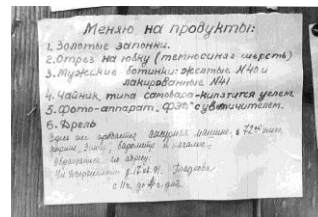 Меняю на продукты:
1. Золотые запонки.
2. Отрез на юбку (темносиняя шерсть)
3. Мужские ботинки: желтые №40 и
лакированные №41
4. Чайник типа самовара-кипятится углем.
5. Фото-аппарат „ФЭД“ с увеличителем.
6. Дрель
Здесь же продается швейная машина, в 72
барометр и
адресу:
д. 17 кв.
с 11 ч. до 4 ч. дня.